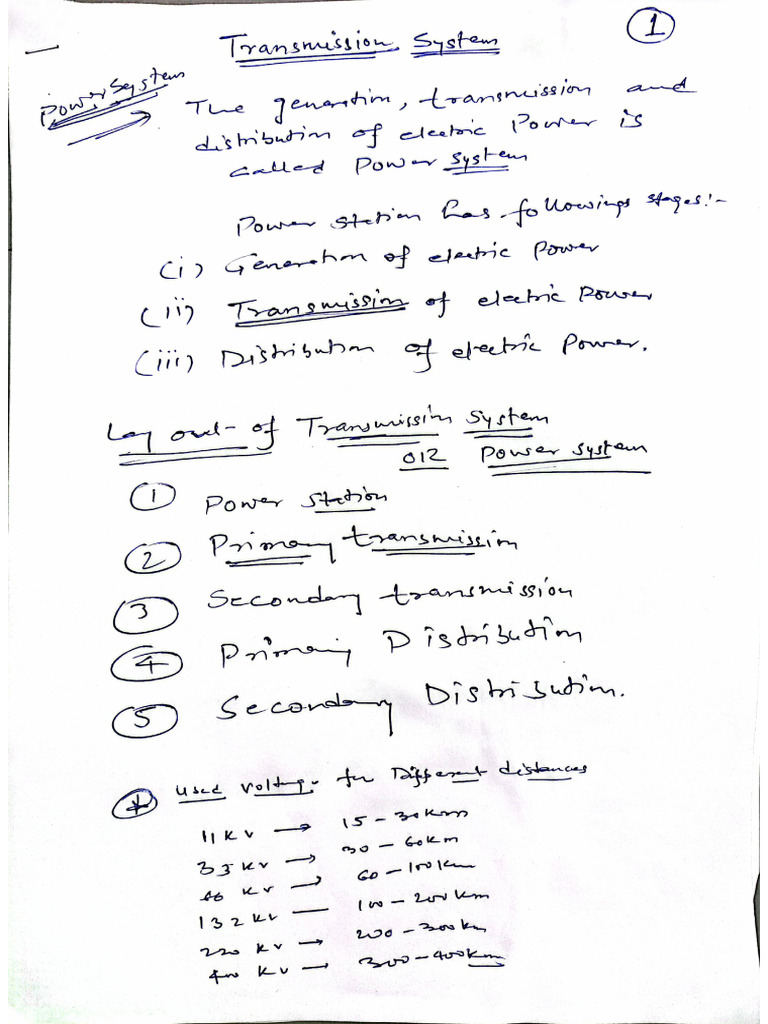 1
Transmission System
Power System
The generation, transmission and
distribution of electric Power is
called Power system
Power station has followings stages:-
(i) Generation of electric Power
(ii) Transmission of electric Power
(iii) Distribution of electric Power.
Lay out of Transmission System
or Power system
1 Power station
2 Primary transmission
3 Secondary transmission
4 Primary Distribution
5 Secondary Distribution.
* Used voltage for Different distances
11 KV → 15 - 30 Km
33 KV → 30 - 60 Km
66 KV → 60 - 100 Km
132 KV — 100 - 200 Km
220 KV → 200 - 300 Km
400 KV → 300 - 400 Km